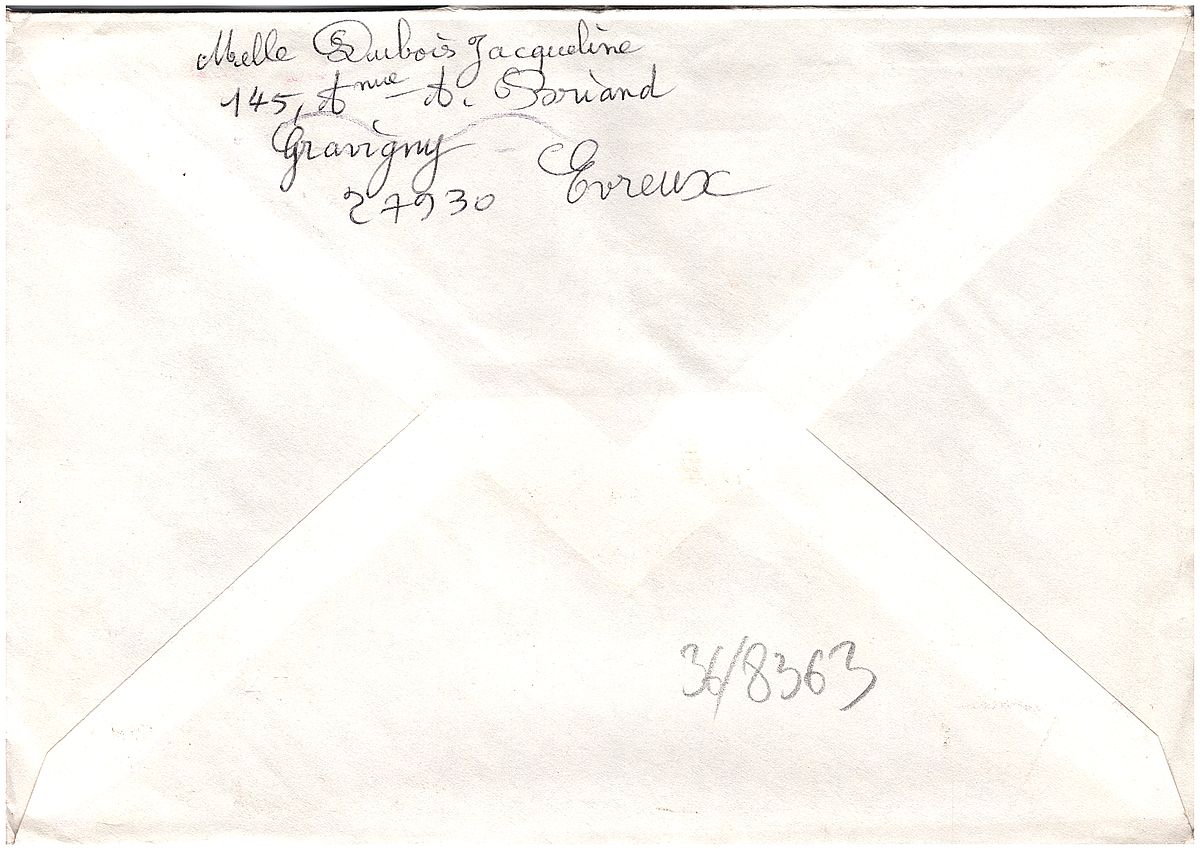 Melle Dubois Jacqueline
145, Anue A. Briand
Gravigny - Evreux
27930
36/8363